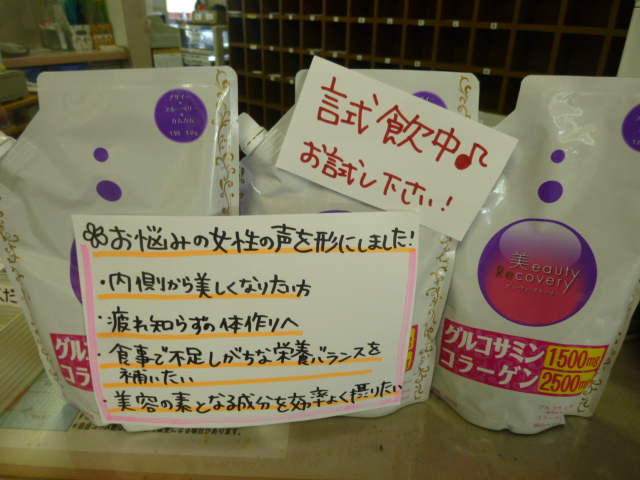 試飲中♪
お試し下さい!
お悩みの女性の声を形にしました!
・内側から美しくなりたい方
・疲れ知らずの体作りへ
・食事で不足しがちな栄養バランスを
補いたい
・美容の素となる成分を効率よく摂りたい
アサイー
×
ブルーベリー
×
カムカム
1回 10g
美eauty
Recovery
ビューティーリカバリー
グルコサミン 1500mg
コラーゲン 2500mg
グルコ
コラ